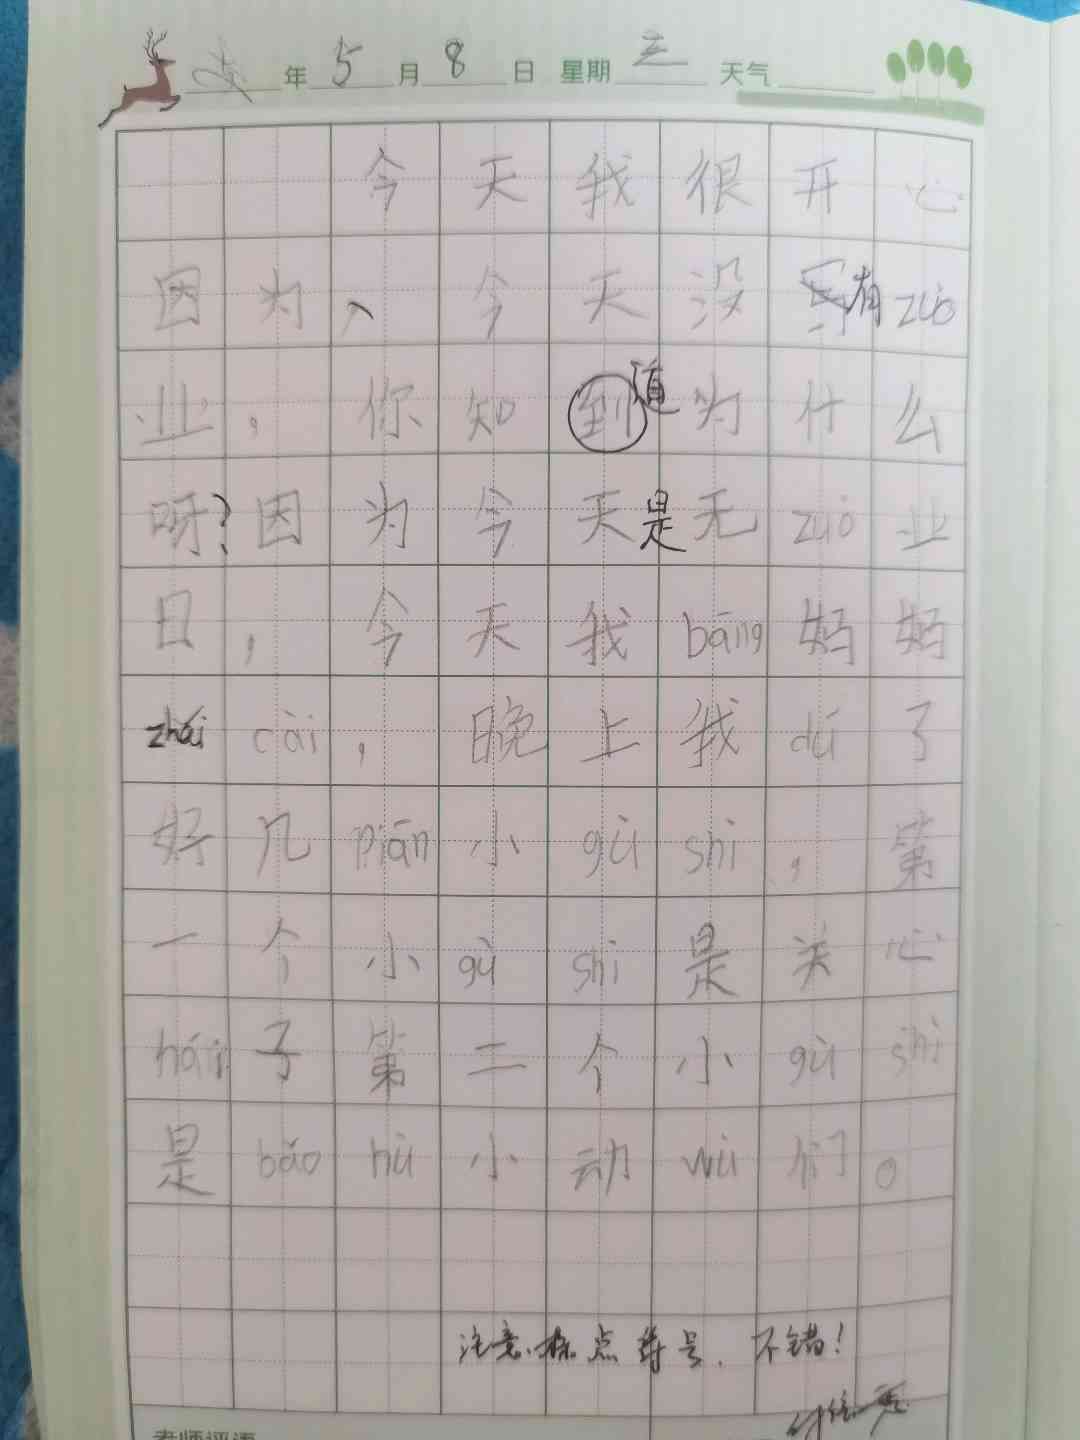 年5月8日 星期三 天气
今天我很开心
因为、今天没有zuò
业,你知到道为什么
呀?因为今天是无zuò业
日,今天我bāng妈妈
zhái cài,晚上我dú了
好几piān小gù shì,第
一个小gù shi是关心
hái子第二个小gù shì
是bǎo hù小动wù们。
注意标点符号,不错!
老师评语